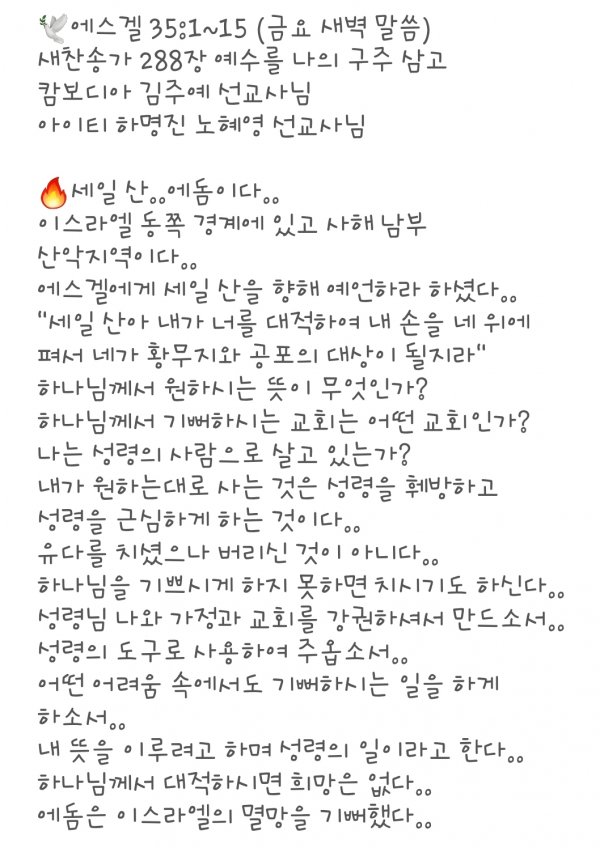 🕊️에스겔 35:1~15 (금요 새벽 말씀)
새찬송가 288장 예수를 나의 구주 삼고
캄보디아 김주예 선교사님
아이티 하명진 노혜영 선교사님
🔥세일 산..에돔이다..
이스라엘 동쪽 경계에 있고 사해 남부
산악지역이다..
에스겔에게 세일 산을 향해 예언하라 하셨다..
"세일 산아 내가 너를 대적하여 내 손을 네 위에
펴서 네가 황무지와 공포의 대상이 될지라"
하나님께서 원하시는 뜻이 무엇인가?
하나님께서 기뻐하시는 교회는 어떤 교회인가?
나는 성령의 사람으로 살고 있는가?
내가 원하는대로 사는 것은 성령을 훼방하고
성령을 근심하게 하는 것이다..
유다를 치셨으나 버리신 것이 아니다..
하나님을 기쁘시게 하지 못하면 치시기도 하신다..
성령님 나와 가정과 교회를 강권하셔서 만드소서..
성령의 도구로 사용하여 주옵소서..
어떤 어려움 속에서도 기뻐하시는 일을 하게
하소서..
내 뜻을 이루려고 하며 성령의 일이라고 한다..
하나님께서 대적하시면 희망은 없다..
에돔은 이스라엘의 멸망을 기뻐했다..